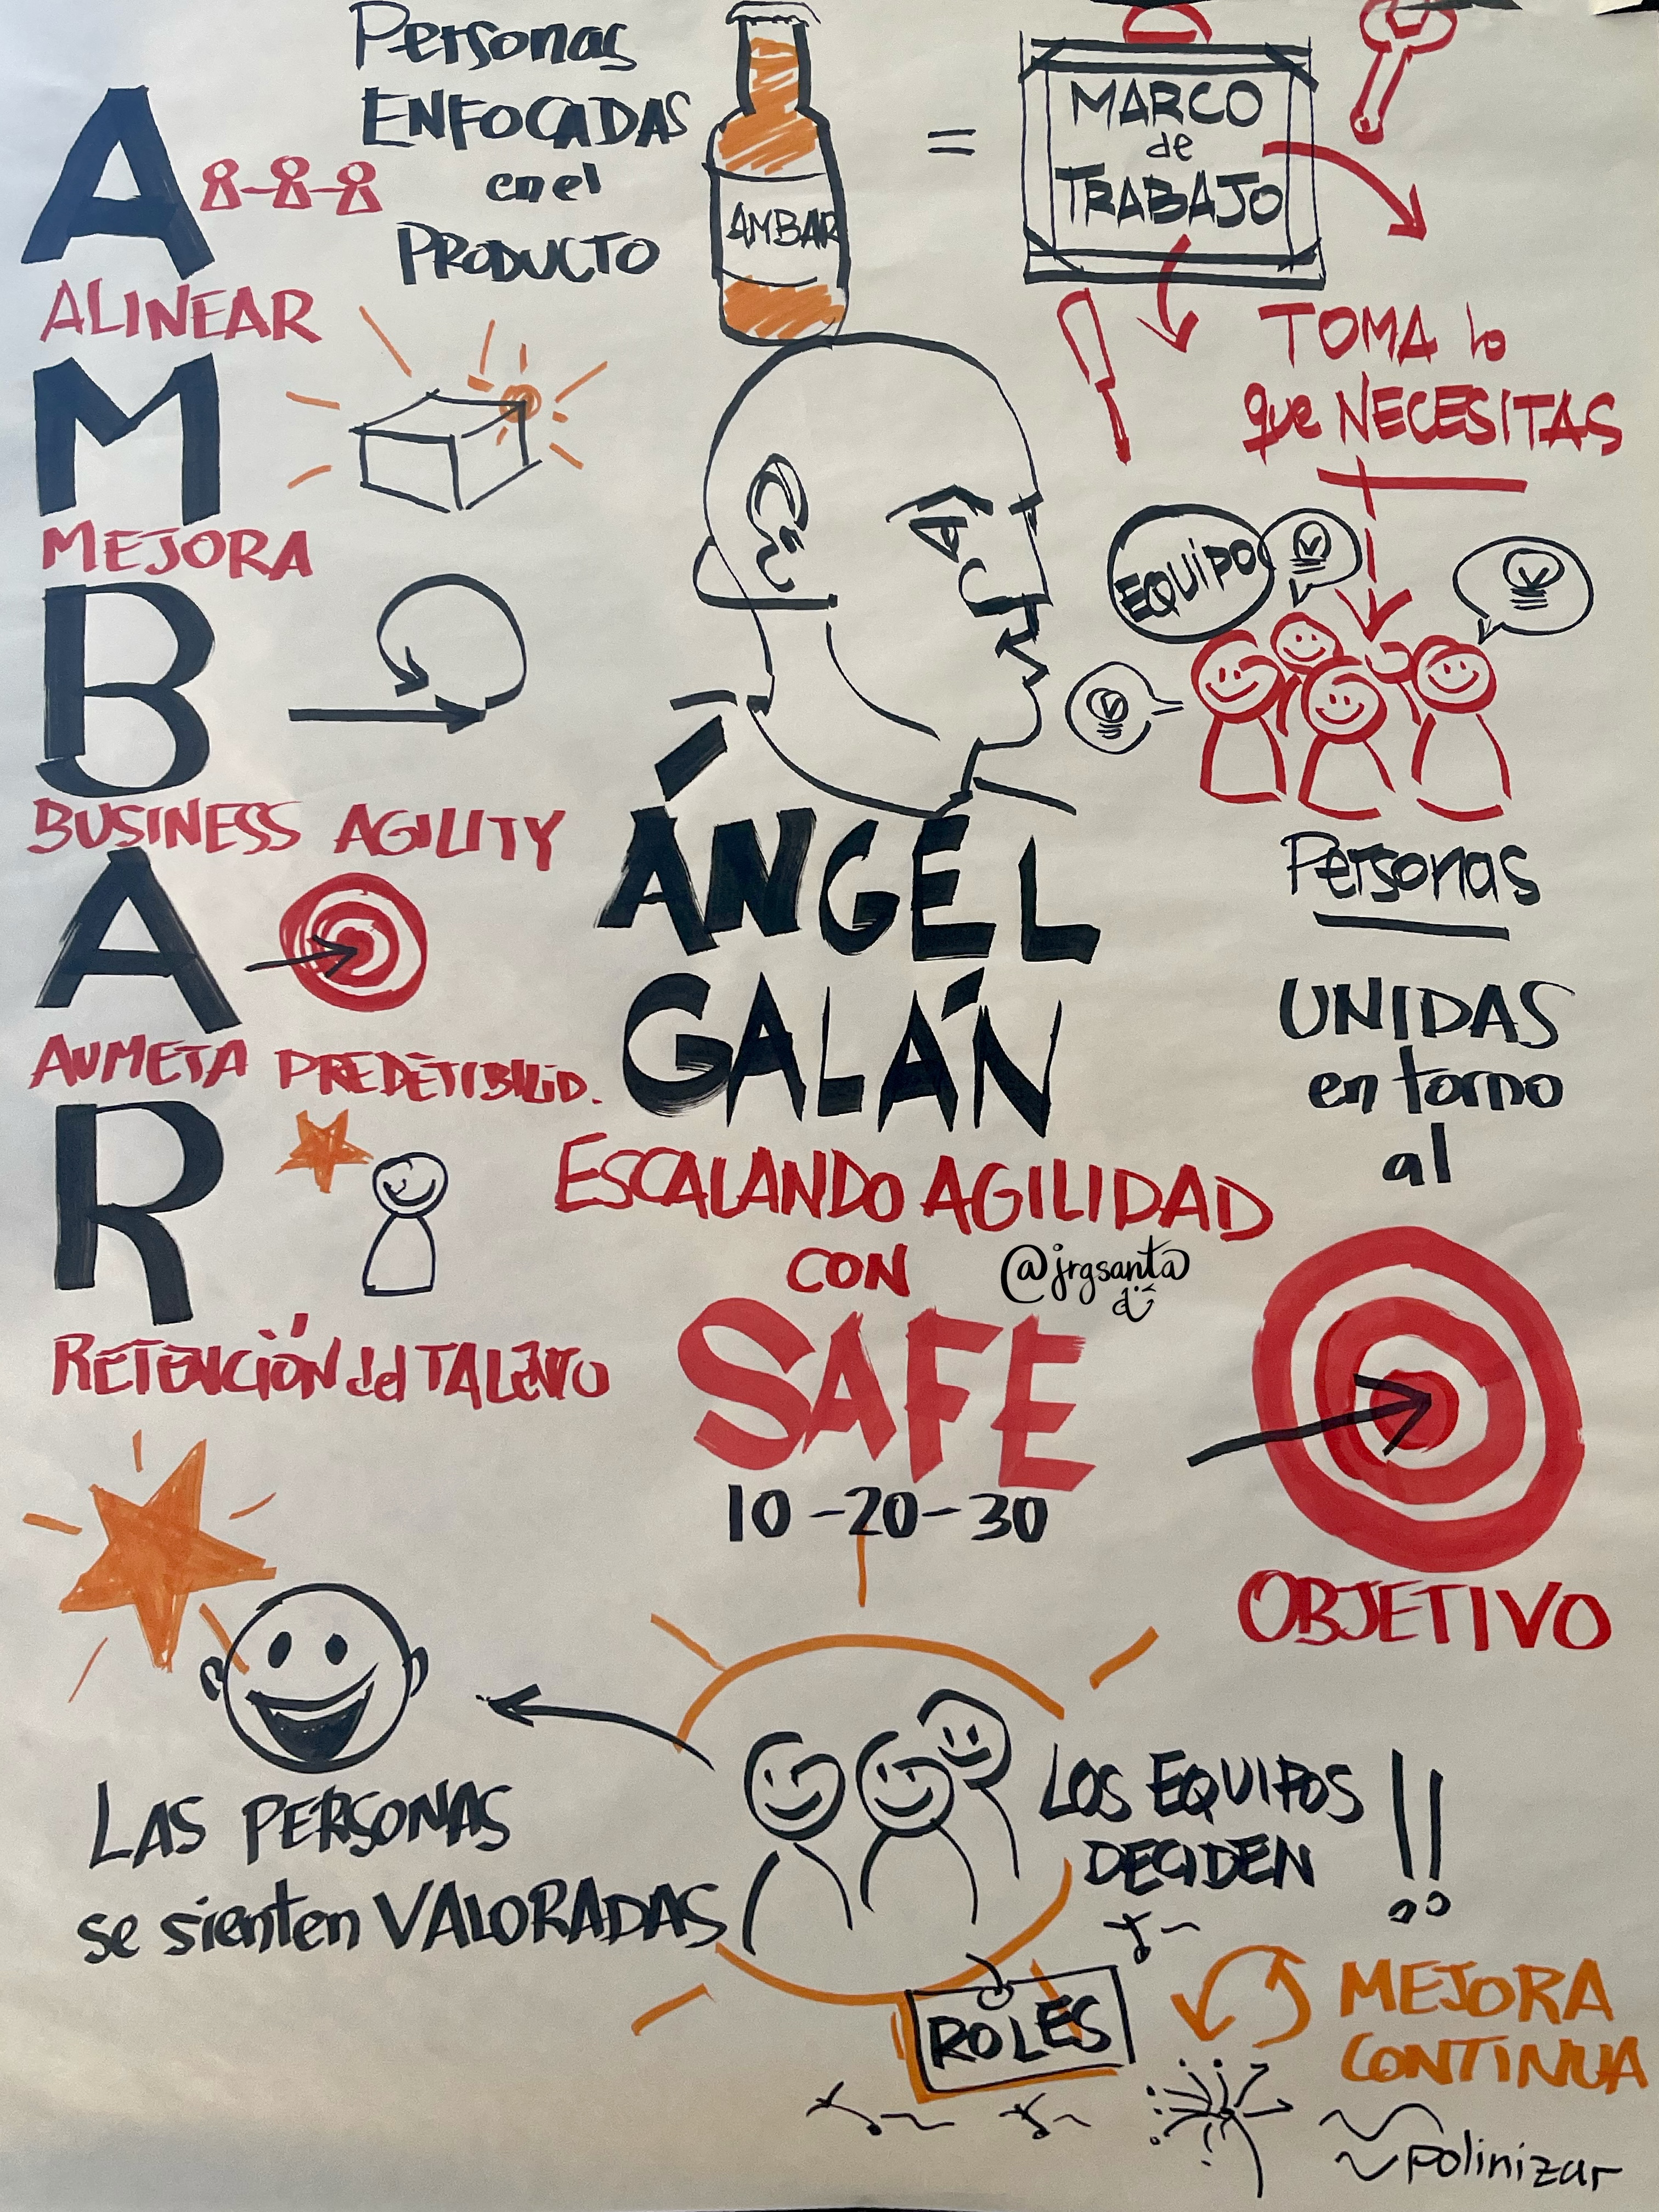 Personas
ENFOCADAS
en el
PRODUCTO
AMBAR
=
MARCO
de
TRABAJO
TOMA lo
que NECESITAS
A
ALINEAR
M
MEJORA
B
BUSINESS AGILITY
A
AUMETA PREDETIBILID.
R
RETENCIÓN del TALENTO
EQUIPO
Personas
UNIDAS
en torno
al
OBJETIVO
ÁNGEL
GALÁN
ESCALANDO AGILIDAD
CON
@jrgsanta
SAFE
10-20-30
LAS PERSONAS
se sienten VALORADAS
LOS EQUIPOS
DECIDEN !!
ROLES
MEJORA
CONTINUA
polinizar